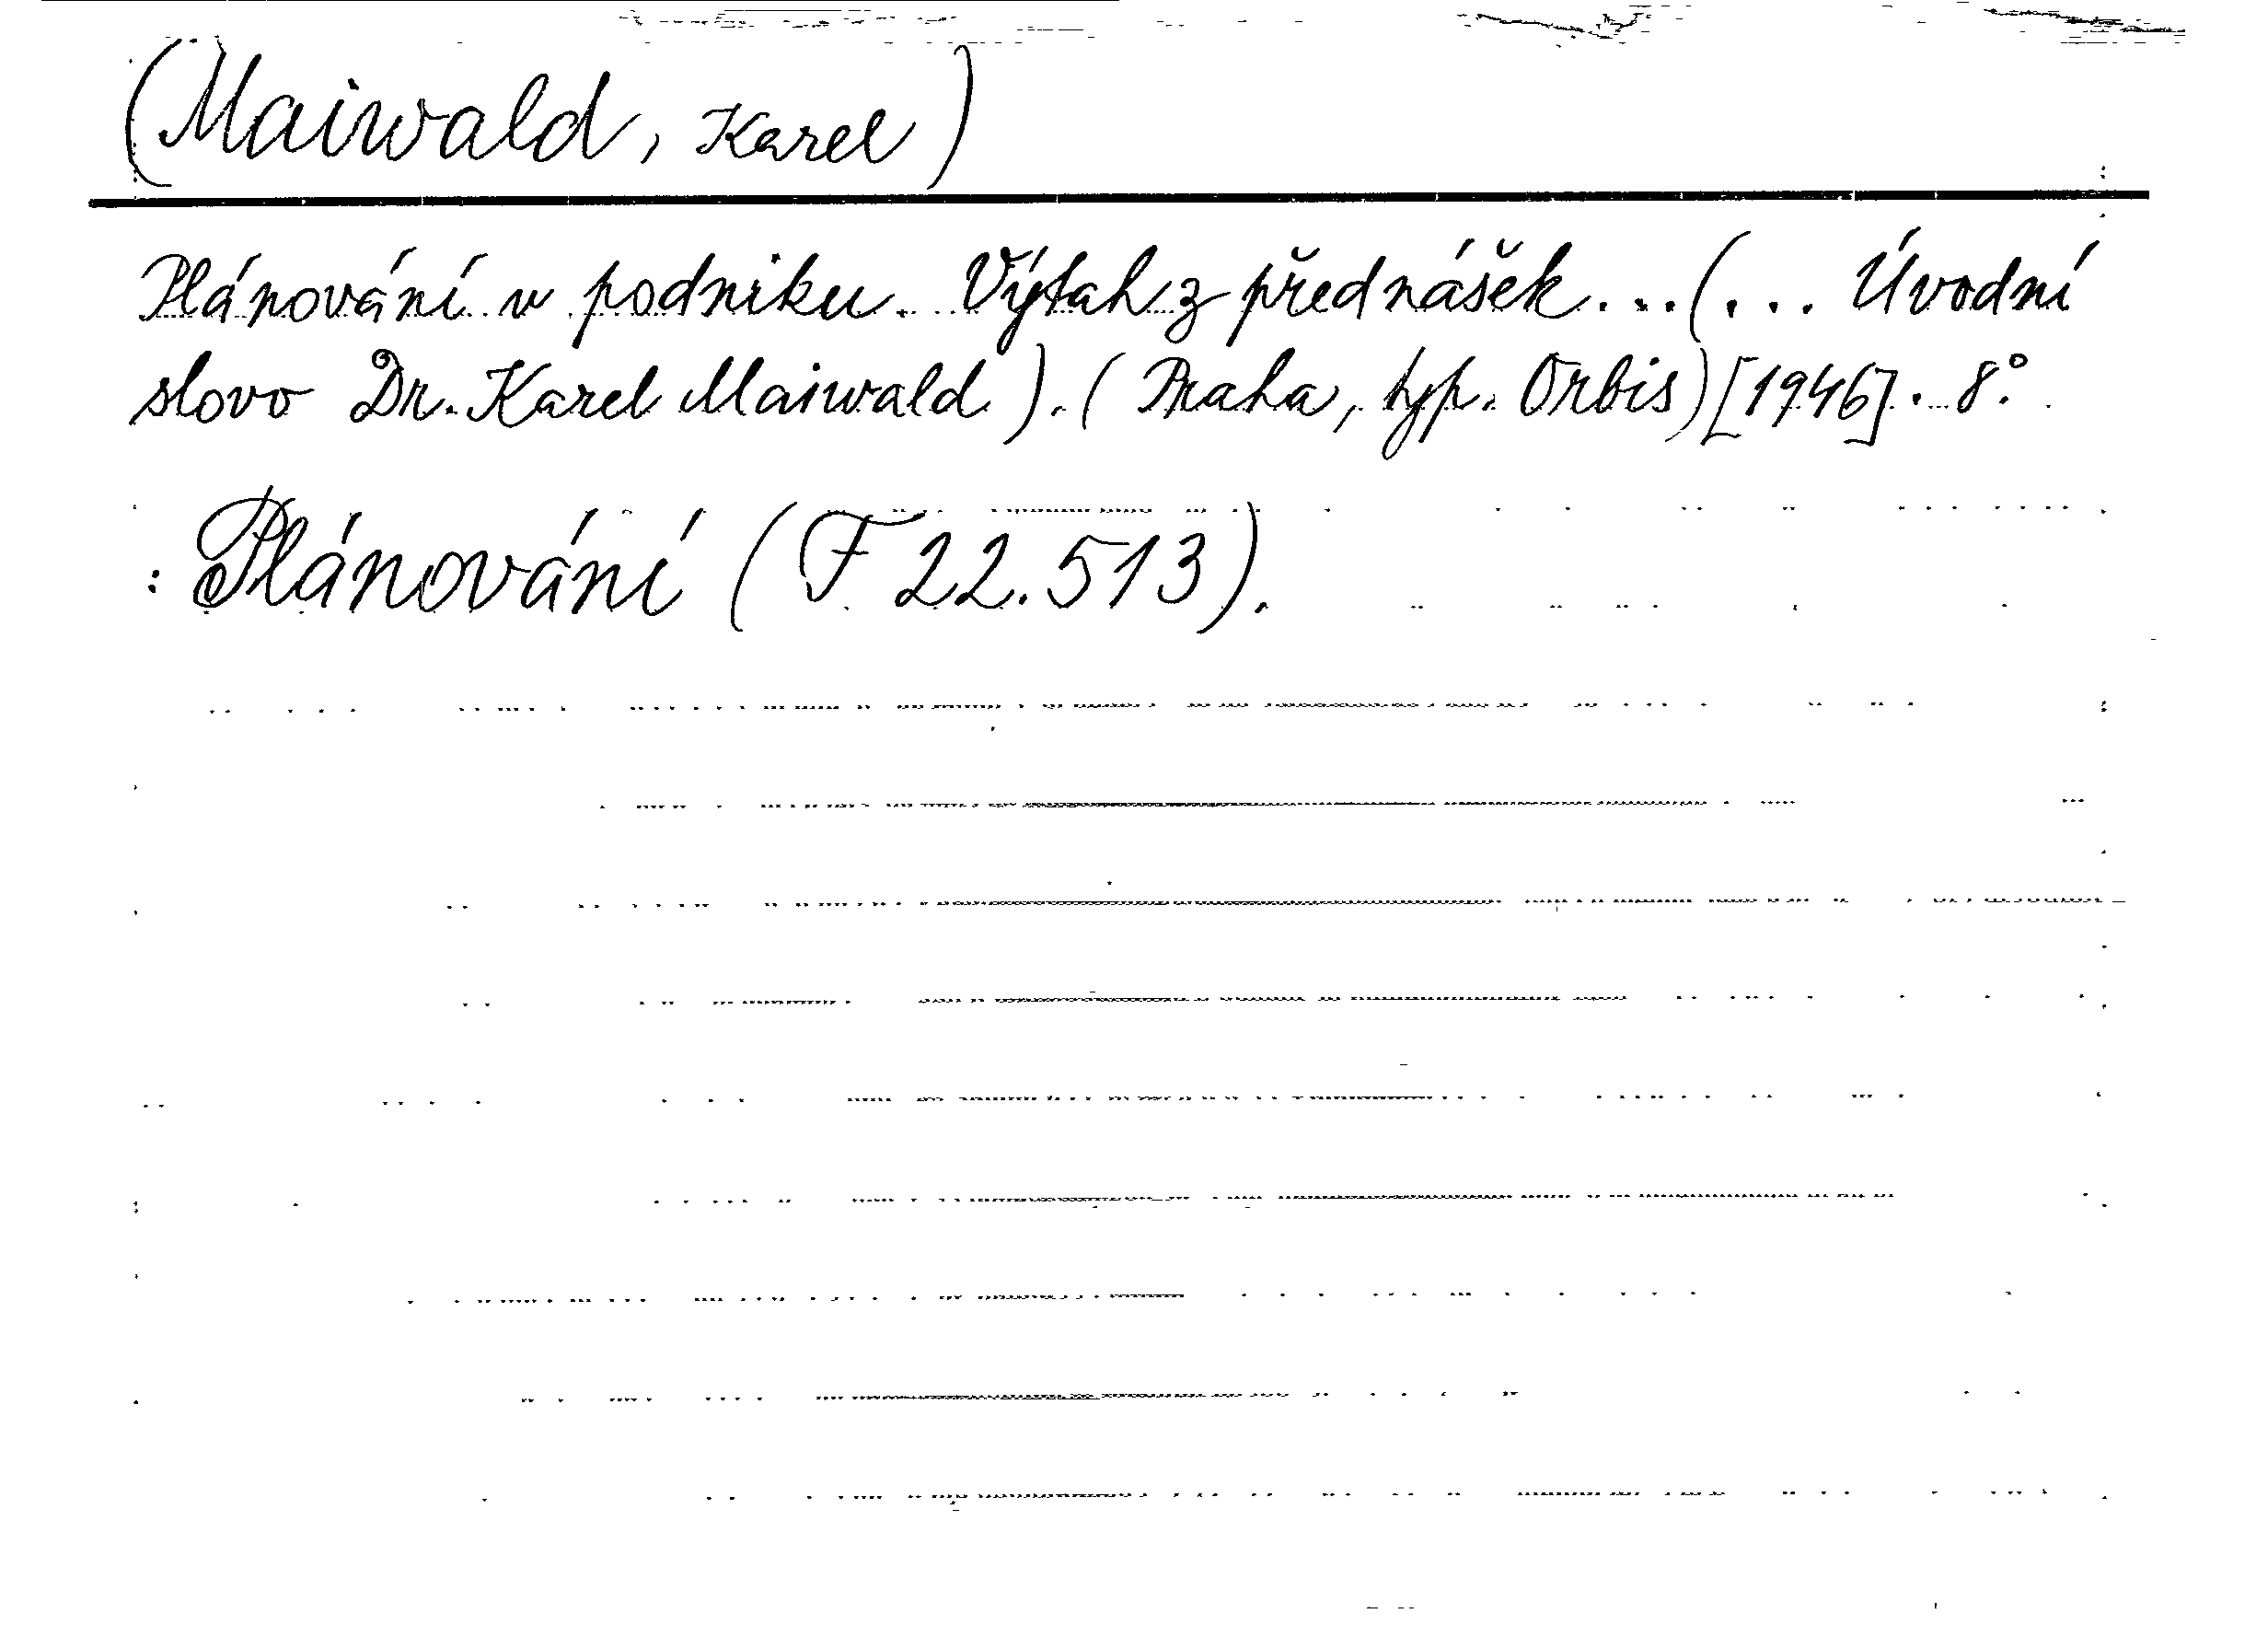 (Maiwald, Karel)
Plánování v podniku. Výtah z přednášek...(... Úvodní
slovo Dr. Karel Maiwald).(Praha, typ. Orbis)[1946]. 8°.
: Plánování (F 22.513).